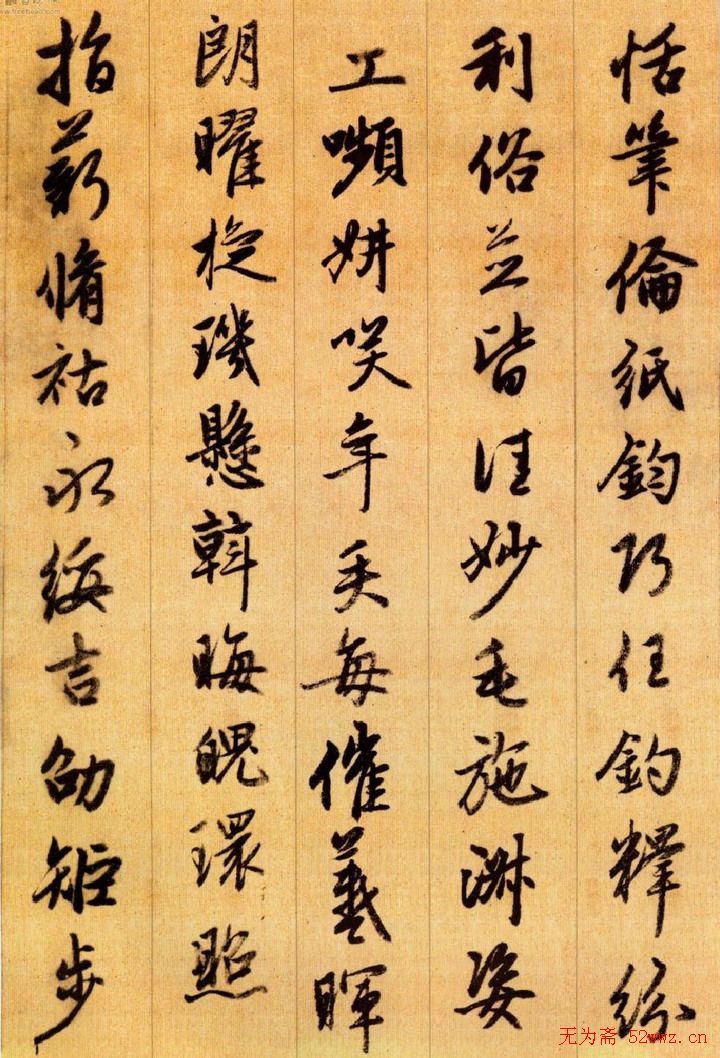 恬筆倫紙鈞巧任釣釋紛
利俗並皆佳妙毛施淑姿
工嚬妍咲年矢每催羲暉
朗曜旋璣懸斡晦魄環照
指薪脩祜永綏吉劭矩步
无为斋 52wwz.cn